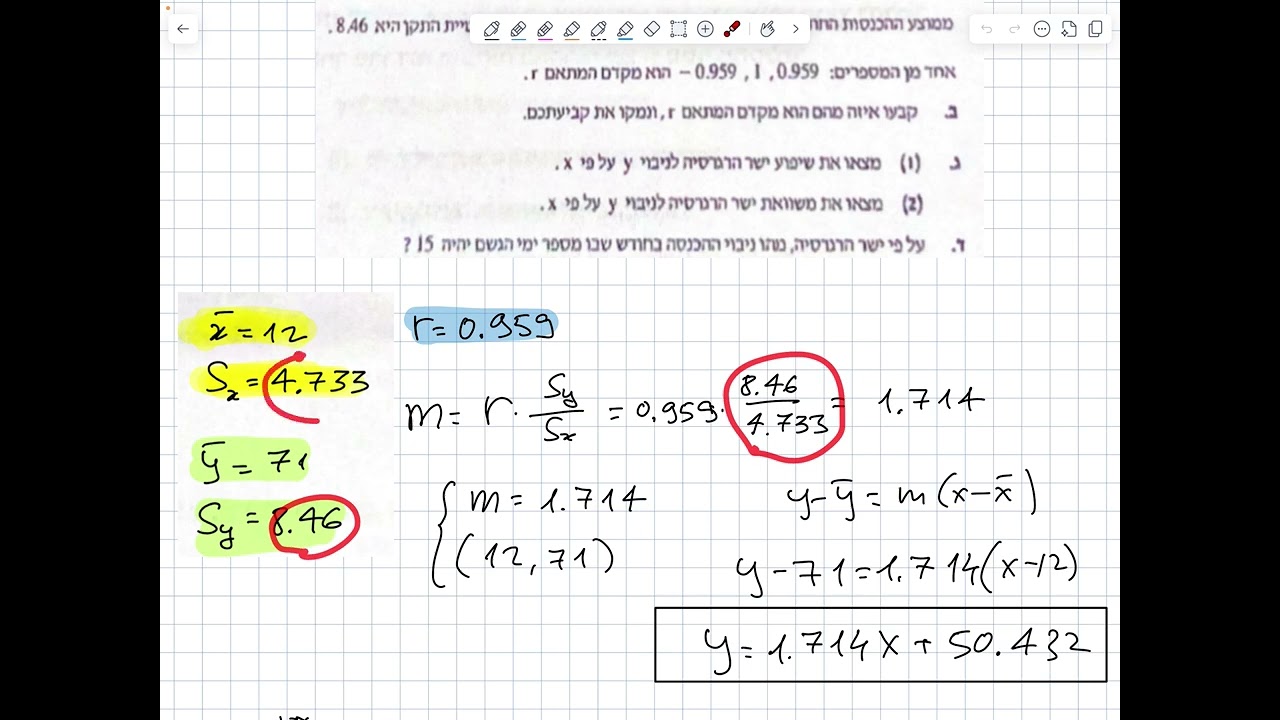 ממוצע ההכנסות
טיית התקן היא 8.46 .
אחד מן המספרים: 0.959 , 1 , 0.959 – הוא מקדם המתאם r .
ב. קבעו איזה מהם הוא מקדם המתאם r , ונמקו את קביעתכם.
ג. (1) מצאו את שיפוע ישר הרגרסיה לניבוי y על פי x .
(2) מצאו את משוואת ישר הרגרסיה לניבוי y על פי x .
ד. על פי ישר הרגרסיה, מהו ניבוי ההכנסה בחודש שבו מספר ימי הגשם יהיה 15 ?
x̄ = 12
r = 0.959
Sx = 4.733
m = r · Sy/Sx = 0.959 · 8.46/4.733 = 1.714
ȳ = 71
Sy = 8.46
{ m = 1.714
(12, 71)
y - ȳ = m(x - x̄)
y - 71 = 1.714(x - 12)
y = 1.714x + 50.432